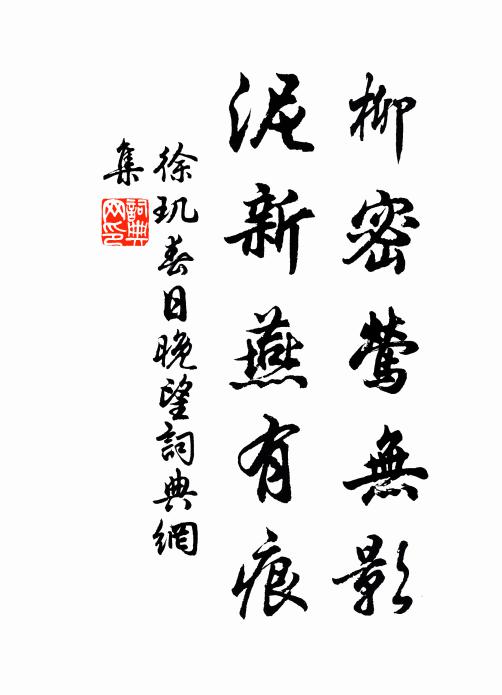 柳密鶯無影
泥新燕有痕
徐玑春日晚望詞典網
集
詞典
网印